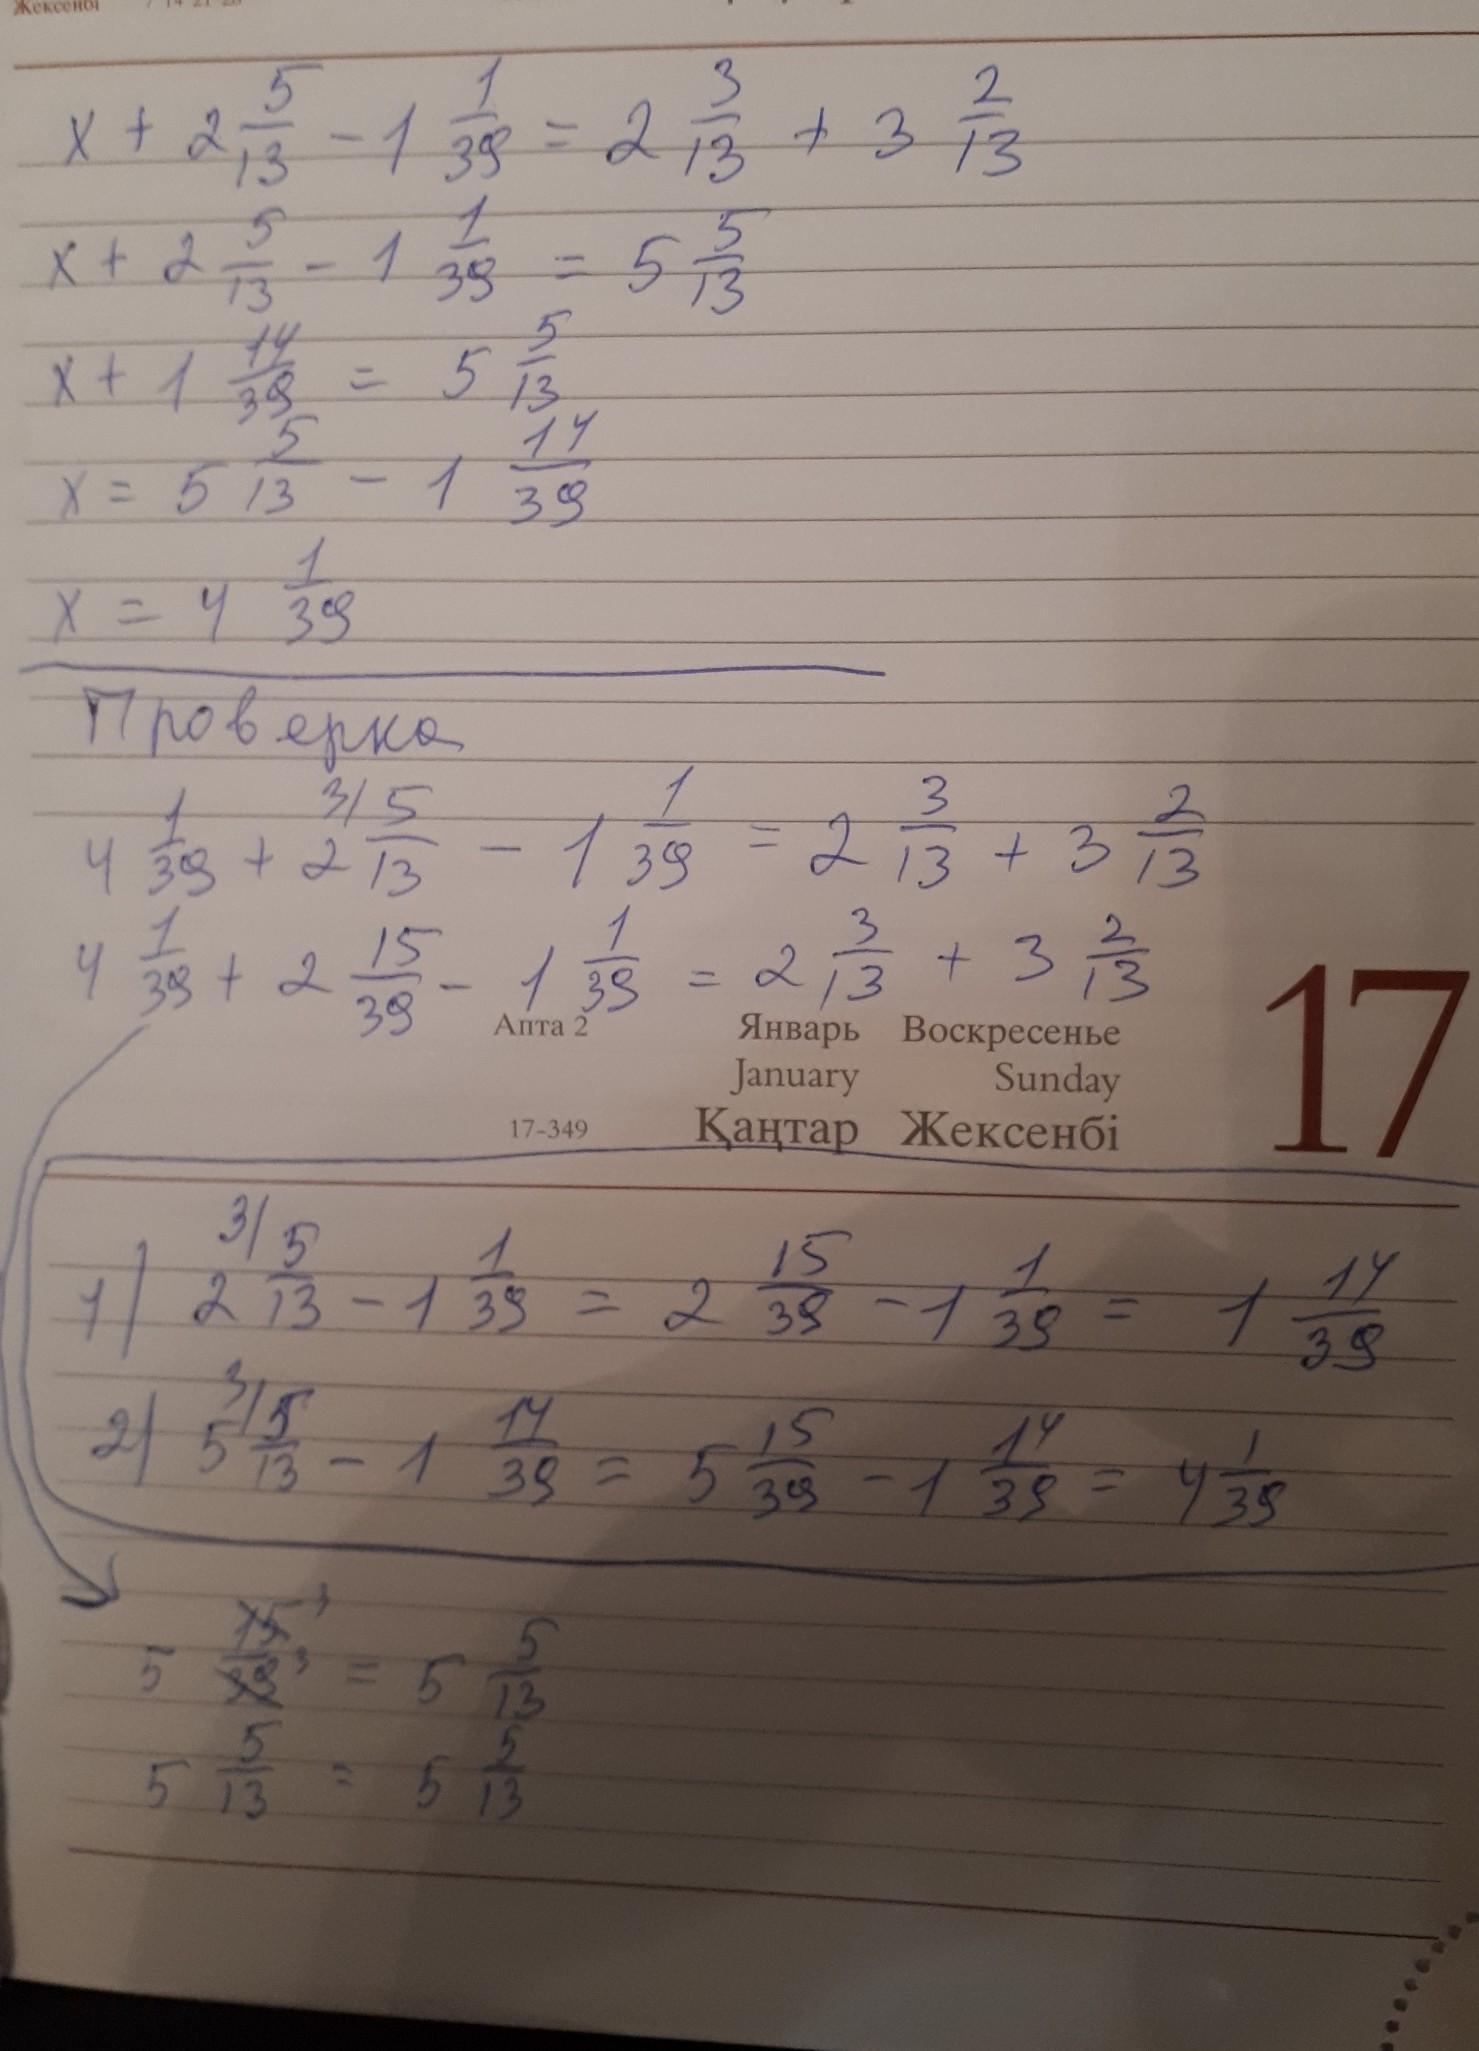 Жексенбі 7 14 21 28
x + 2 5/13 - 1 1/39 = 2 3/13 + 3 2/13
x + 2 5/13 - 1 1/39 = 5 5/13
x + 1 14/39 = 5 5/13
x = 5 5/13 - 1 14/39
x = 4 1/39
Проверка
4 1/39 + 2 3/ 5/13 - 1 1/39 = 2 3/13 + 3 2/13
4 1/39 + 2 15/39 - 1 1/39 = 2 3/13 + 3 2/13
Апта 2 Январь Воскресенье 17
January Sunday
17-349 Қаңтар Жексенбі
1) 2 3/ 5/13 - 1 1/39 = 2 15/39 - 1 1/39 = 1 14/39
2) 5 3/ 5/13 - 1 14/39 = 5 15/39 - 1 14/39 = 4 1/39
5 15/39 3 3 = 5 5/13
5 5/13 = 5 5/13